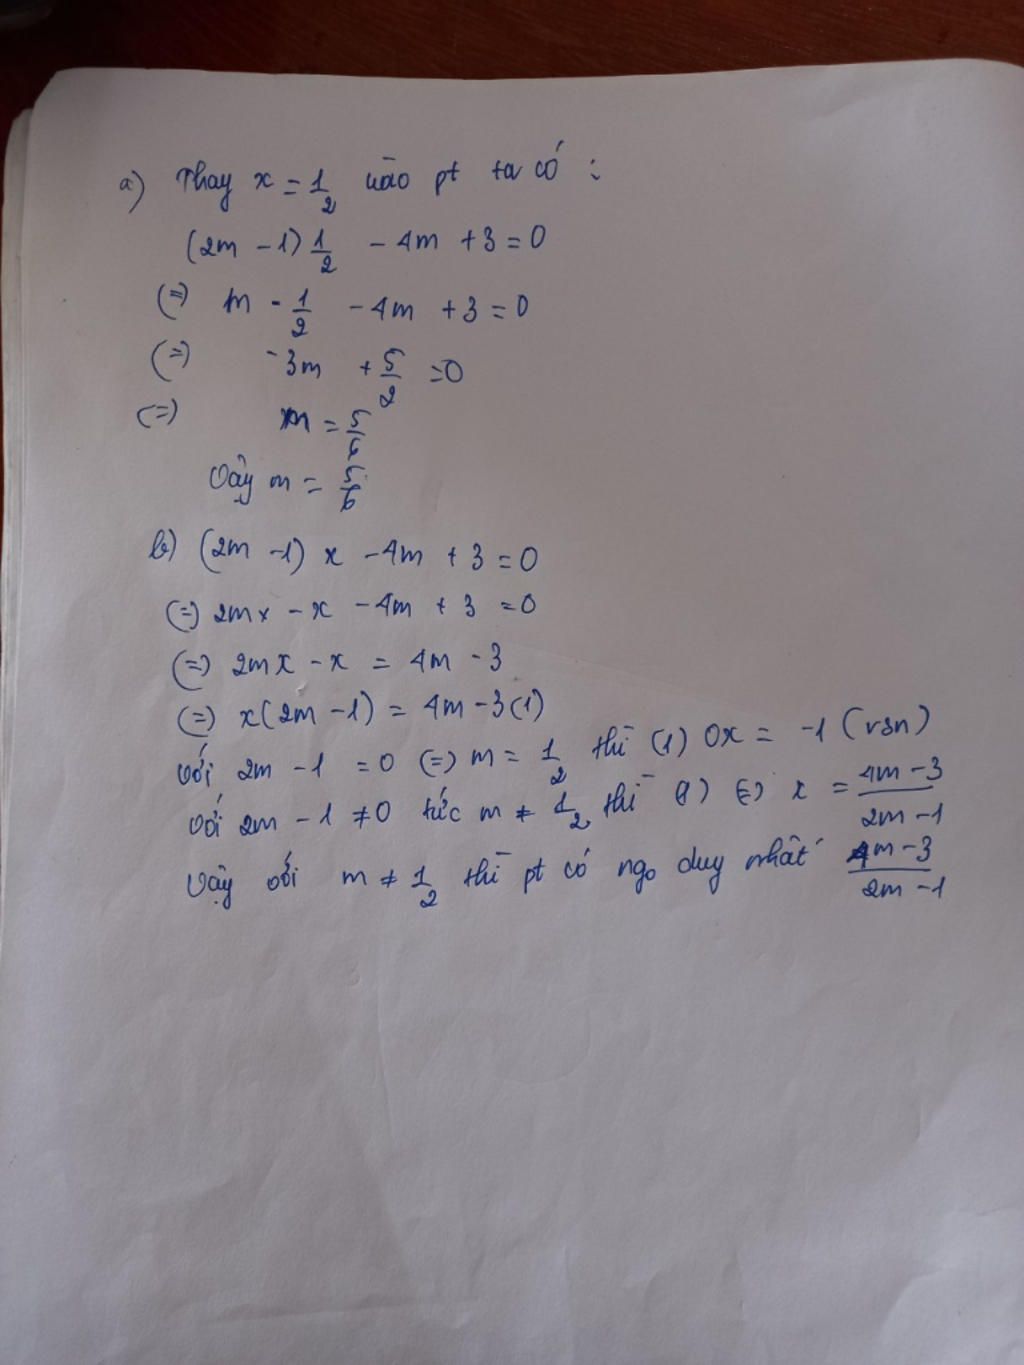 a) Thay x = 1/2 vào pt ta có :
(2m - 1) 1/2 - 4m + 3 = 0
(=) m - 1/2 - 4m + 3 = 0
(=) -3m + 5/2 = 0
(=) m = 5/6
Vậy m = 5/6
b) (2m - 1) x - 4m + 3 = 0
(=) 2mx - x - 4m + 3 = 0
(=) 2mx - x = 4m - 3
(=) x(2m - 1) = 4m - 3 (1)
Với 2m - 1 = 0 (=) m = 1/2 thì (1) 0x = -1 (vsn)
Với 2m - 1 ≠ 0 tức m ≠ 1/2 thì (1) (=) x = (4m - 3)/(2m - 1)
Vậy với m ≠ 1/2 thì pt có ngo duy nhất (4m - 3)/(2m - 1)